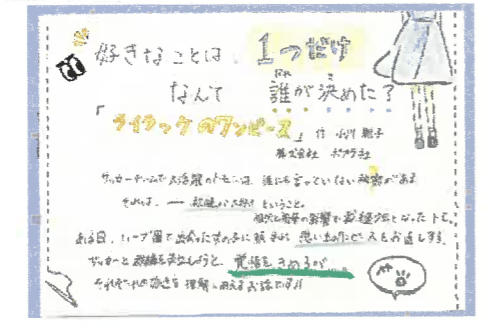 好きなことは 1つだけ
なんて 誰が決めた？
「ライラックのワンピース」 作 小川 雅子
株式会社 ポプラ社
サッカーチームで大活躍のトモには、誰にも言っていない秘密がある
それは、― 裁縫が大好き ということ。
祖父と母の影響で裁縫 となったトモ。
ある日、ハーブ園で出会った女の子に頼まれ 思い出のワンピースをお直しする。
サッカーと裁縫を両立しようと、覚悟をきめるが…。
それぞれの を理解し お話です!!